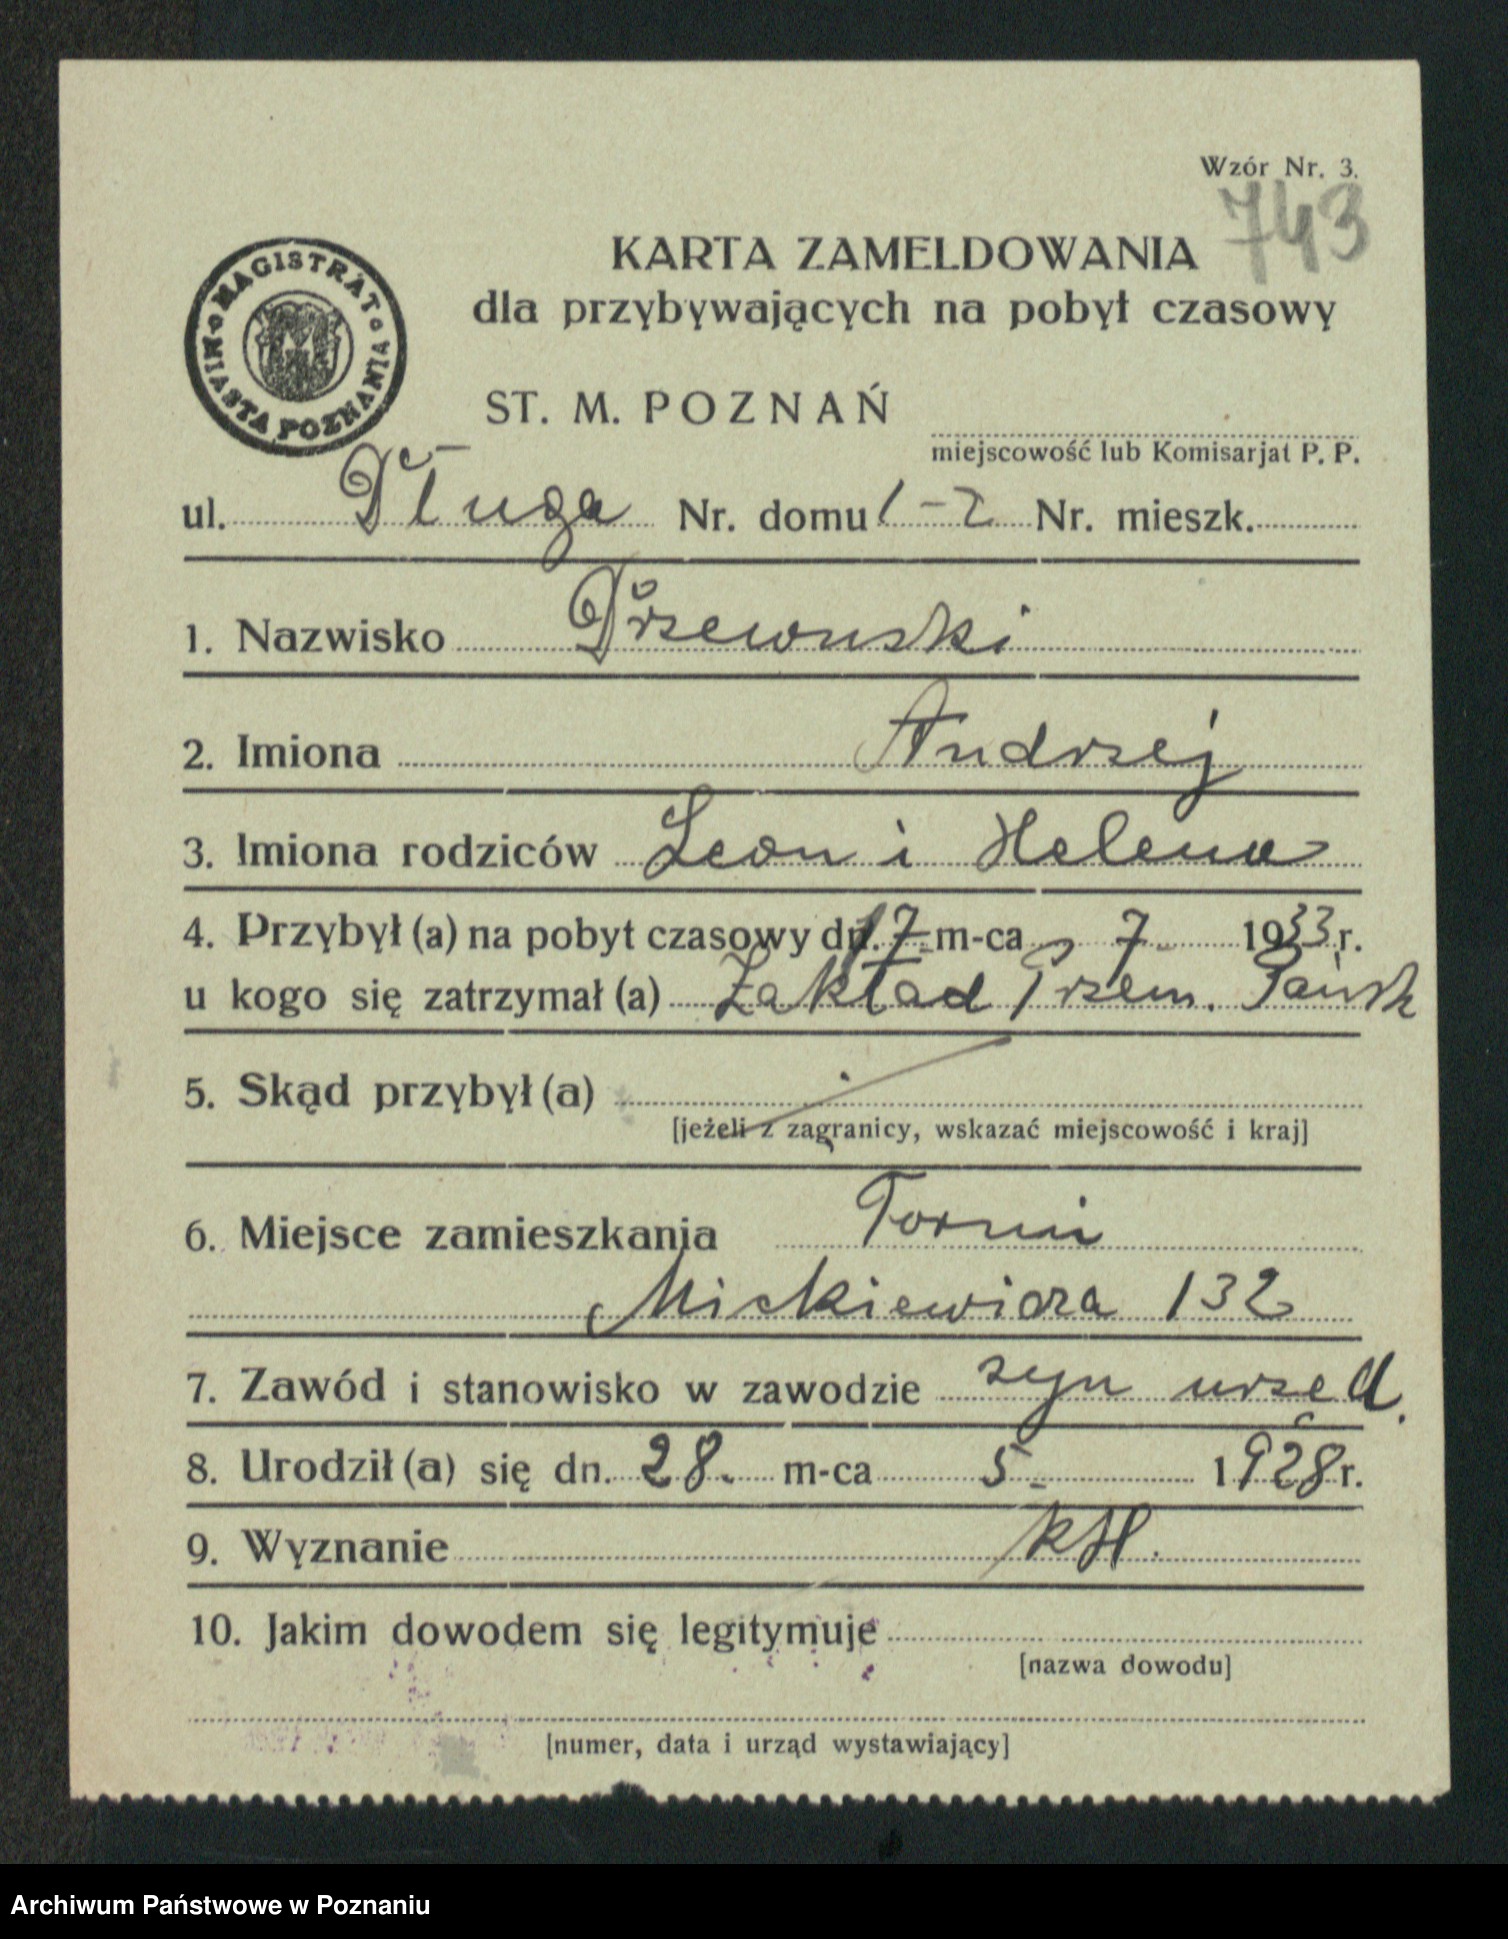 Wzór Nr. 3.
743
KARTA ZAMELDOWANIA
dla przybywających na pobyt czasowy
MAGISTRAT MIASTA POZNANIA
ST. M. POZNAŃ
miejscowość lub Komisarjat P. P.
ul. Długa Nr. domu 1-2 Nr. mieszk.
1. Nazwisko
2. Imiona Andrzej
3. Imiona rodziców Leon i Helena
4. Przybył (a) na pobyt czasowy dn. 17. m-ca 7. 1933 r.
u kogo się zatrzymał (a) Zakład Przem. Pańsk
5. Skąd przybył (a)
[jeżeli z zagranicy, wskazać miejscowość i kraj]
6. Miejsce zamieszkania Toruń
Mickiewicza 132
7. Zawód i stanowisko w zawodzie syn urzęd.
8. Urodził (a) się dn. 28. m-ca 5. 1928 r.
9. Wyznanie
10. Jakim dowodem się legitymuje
[nazwa dowodu]
[numer, data i urząd wystawiający]
Archiwum Państwowe w Poznaniu